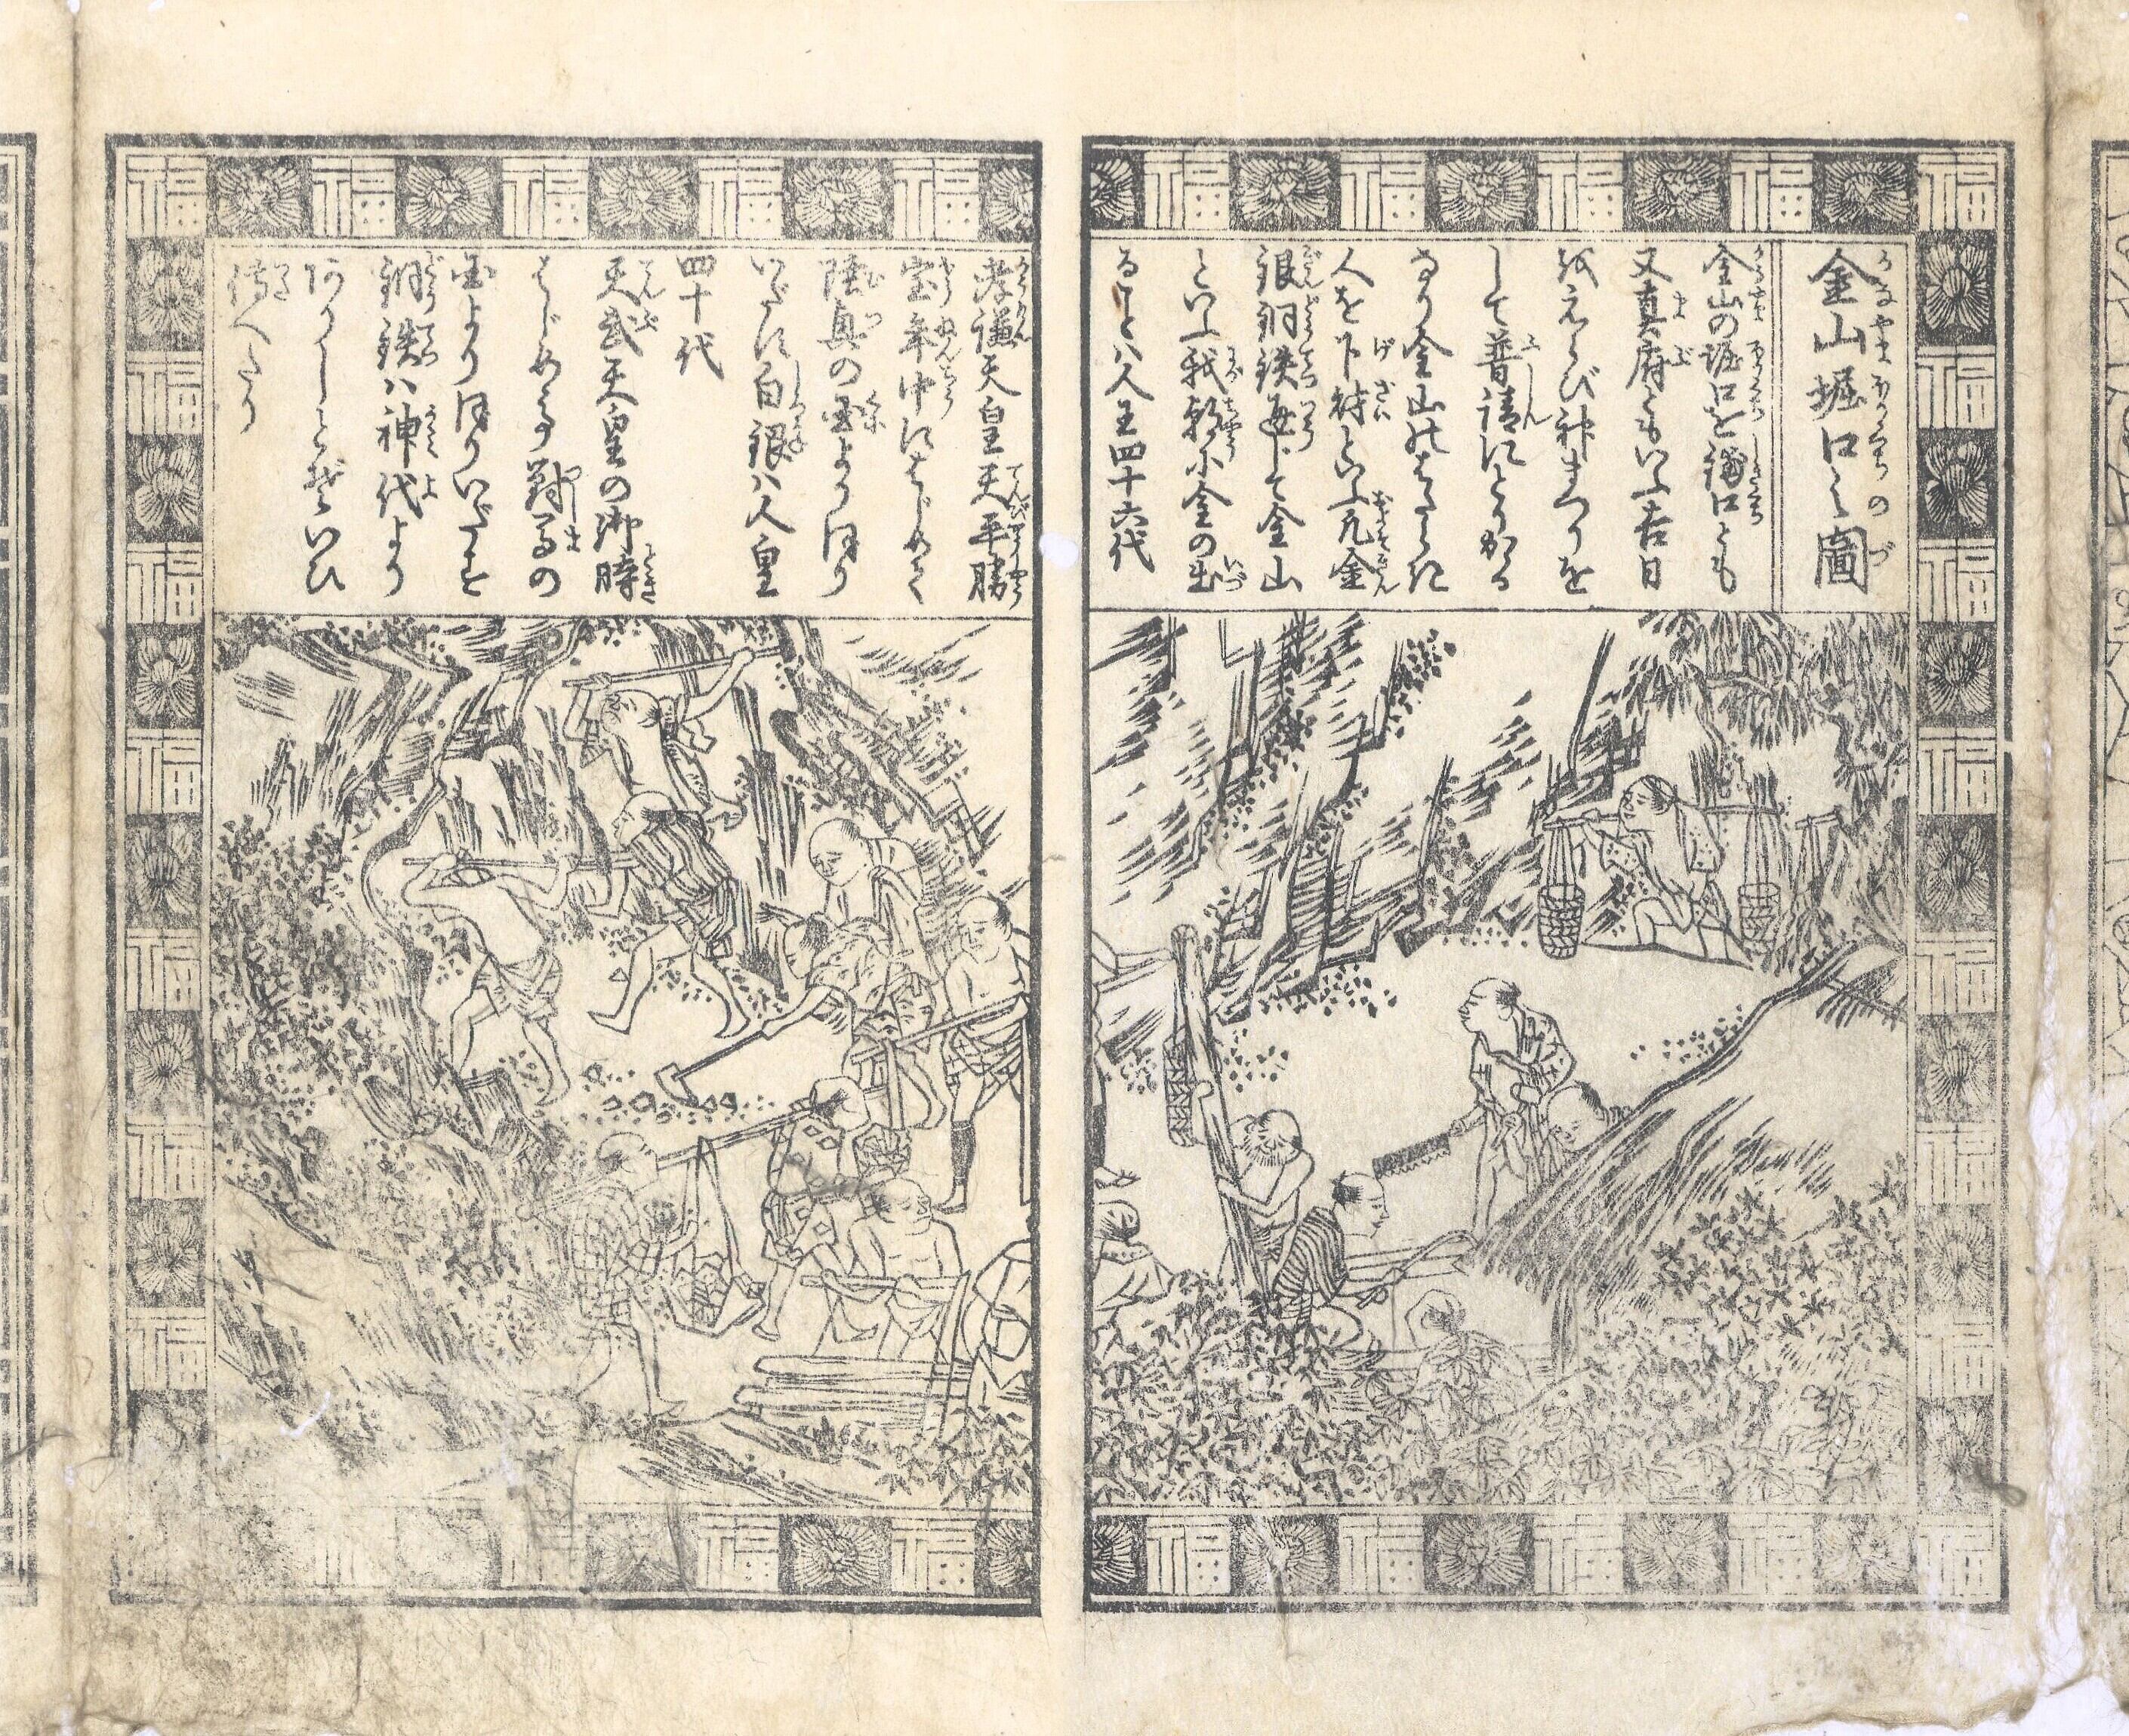 金山堀口之圖
金山の堀口を鋪口とも
又真府ともいふ吉日
をえらび神まつりを
して普請にとりかゝる
なり金山のはたらき
人を下材といふ凡金
銀銅鉄通じて金山
といふ我朝に金の出
ることハ人王四十六代
孝謙天皇天平勝
宝年中にはじめて
陸奥の国よりほり
いだす白銀ハ人皇
四十代
天武天皇の御時
はじめて對馬の
国よりほりいだせり
銅鉄ハ神代より
ありしとぞいひ
傳へたり